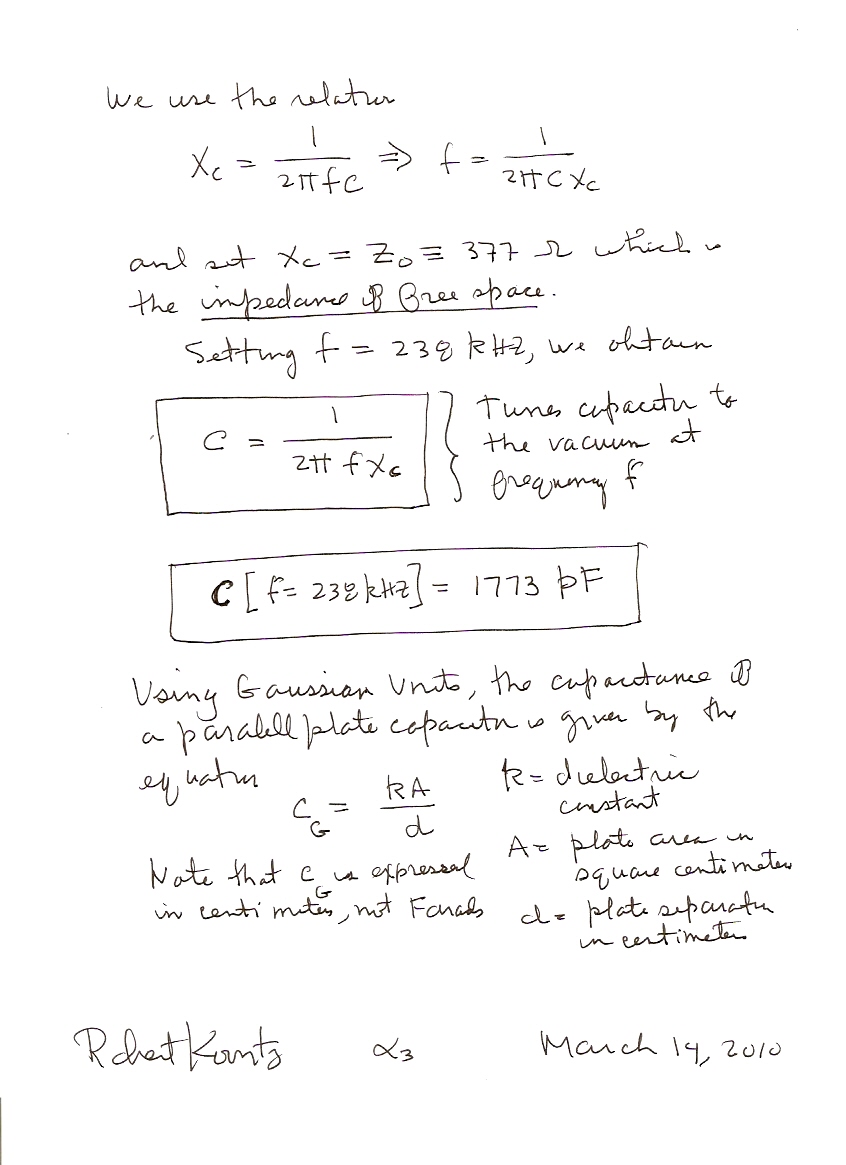 We use the relation
Xc = 1/2πfC ⇒ f = 1/2πCXc
and set Xc = Z₀ ≡ 377 Ω which is
the impedance of free space.
Setting f = 238 kHz, we obtain
C = 1/2π f Xc } Tunes capacitor to
the vacuum at
frequency f
C [f = 238 kHz] = 1773 pF
Using Gaussian Units, the capacitance of
a paralell plate capacitor is given by the
equation
C_G = kA/d
k = dielectric
constant
A = plate area in
square centimeters
d = plate separation
in centimeters
Note that C_G is expressed
in centimeters, not Farads
Robert Koontz α3 March 14, 2010